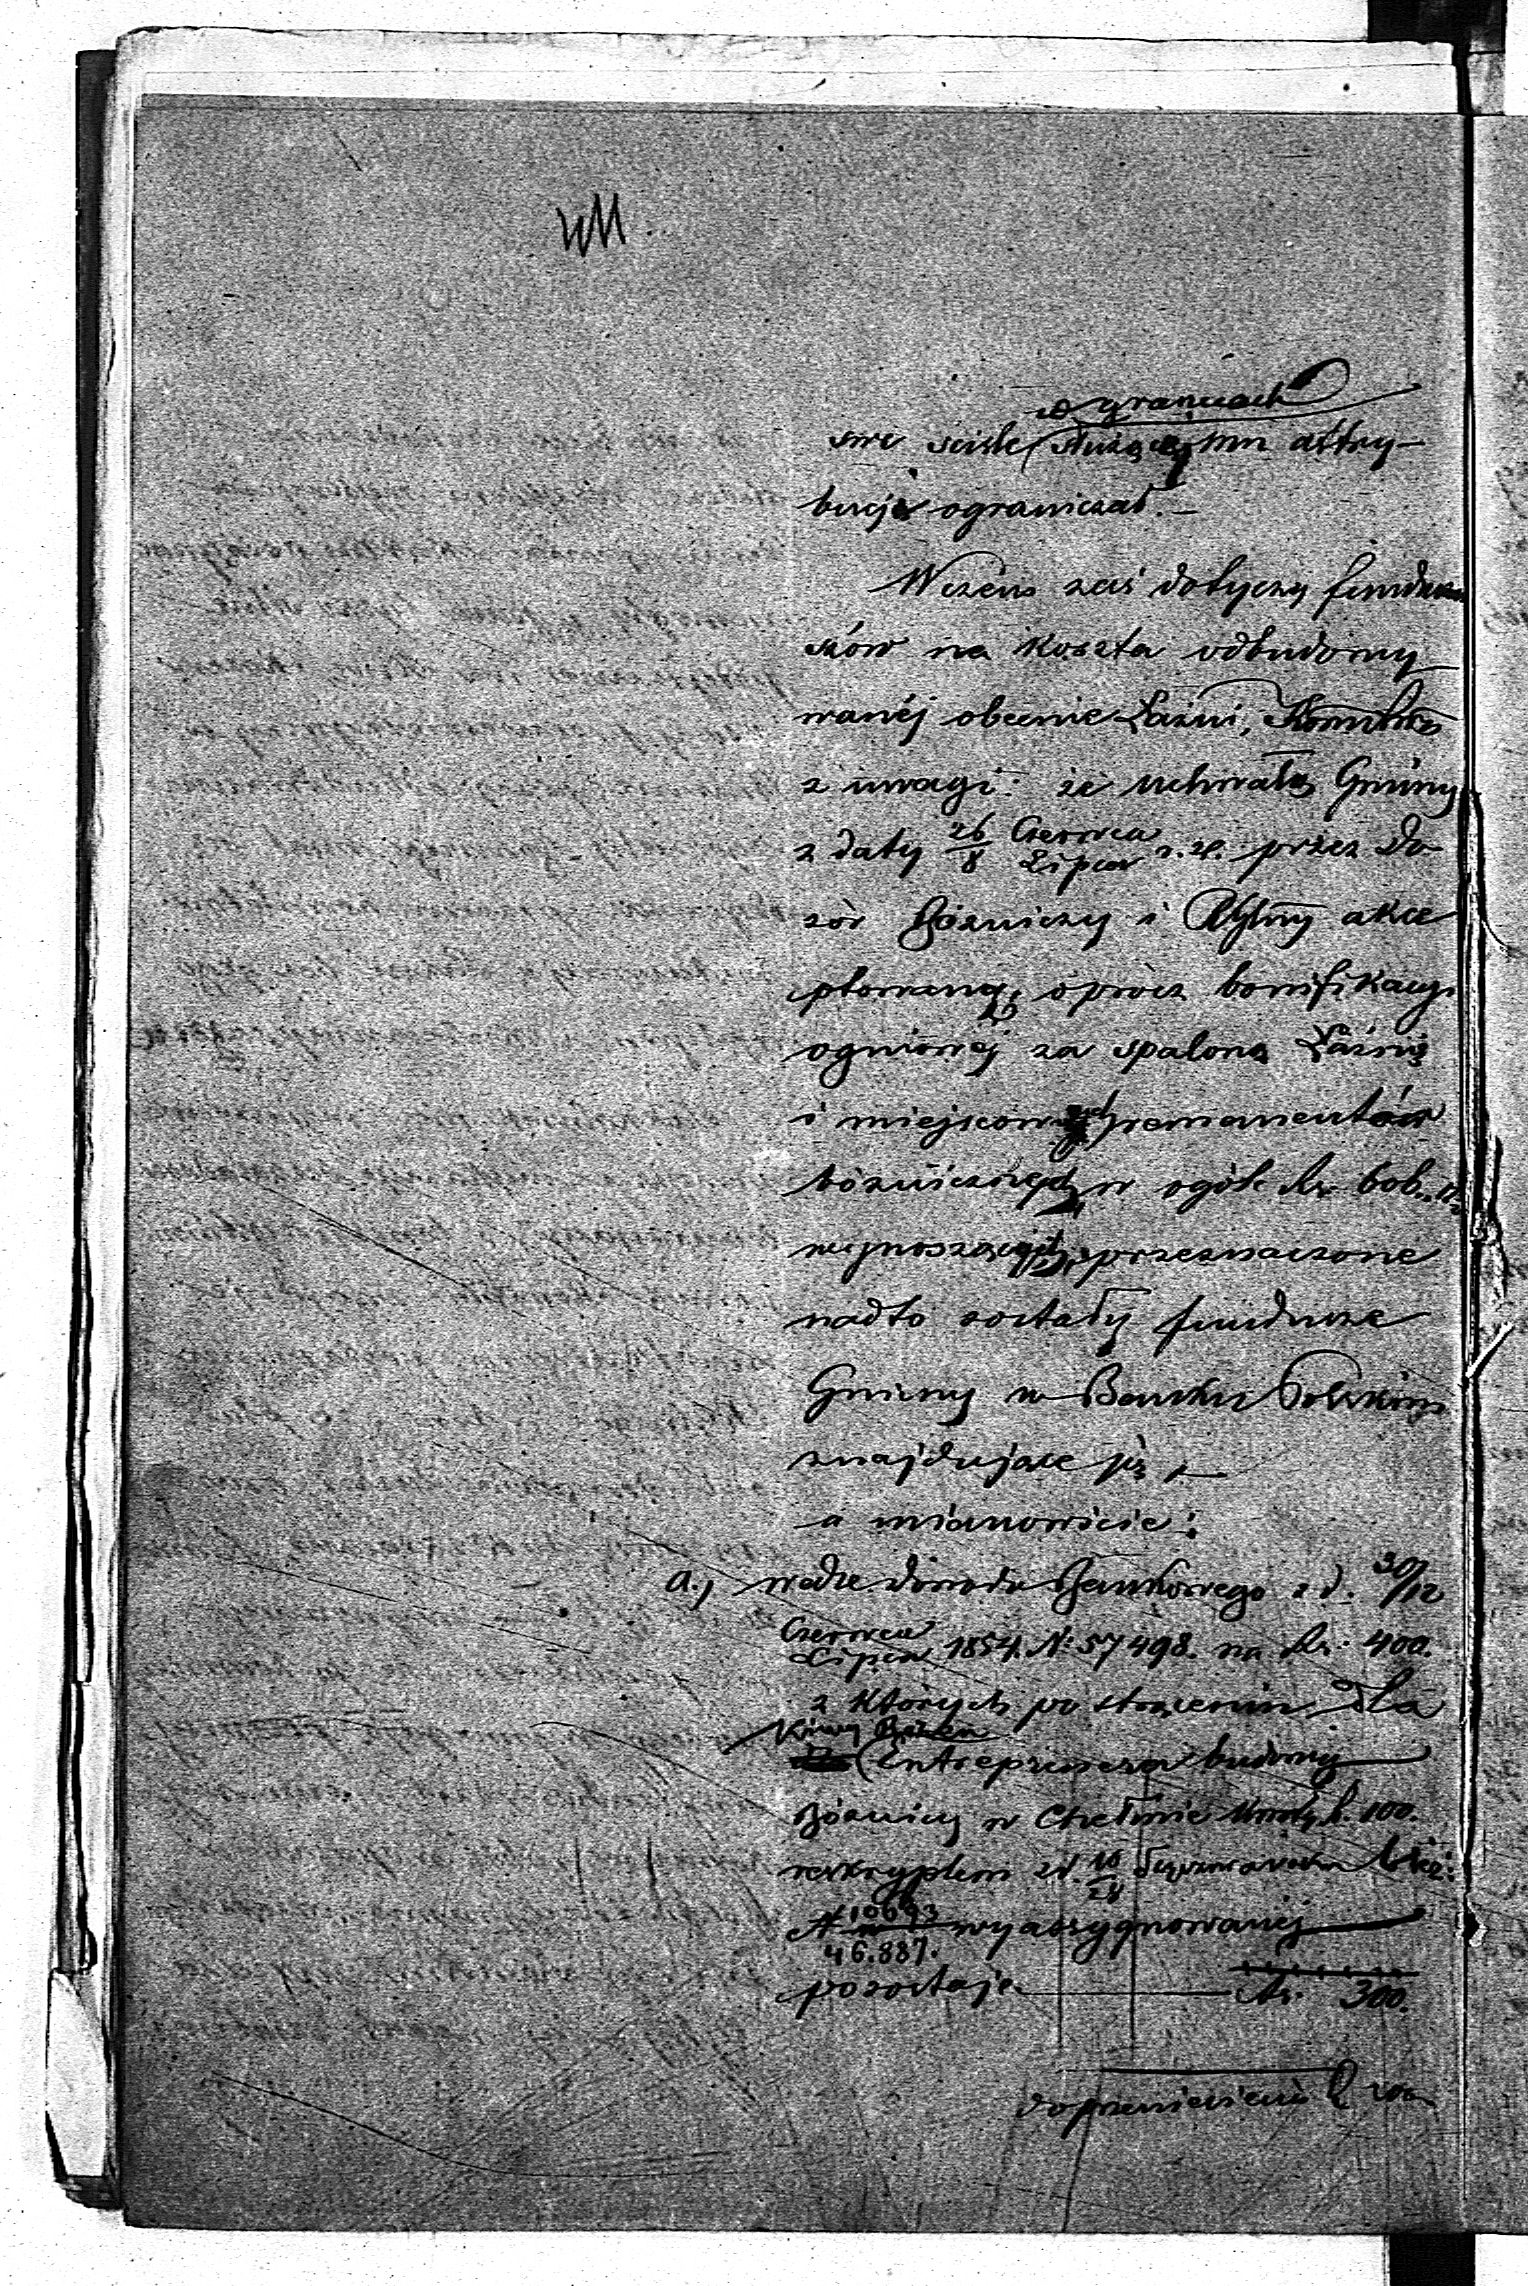 w granicach
swe ściśle służącej mu attry-
bucji ograniczał.-
W czém zaś dotyczy fundu
szów na koszta odbudowy
wanéj obecnie Łaźni,
z uwagi: że uchwałą Gminy
z daty 26/8 Czerwca/Lipca r. z. przez Do-
zór Bóżniczy i akce
ptowaną, oprócz bonifikacyi
ogniowéj za spaloną Łaźnię
i miejscowych remanentów
bóżniczych w ogóle Rs. 606
wynoszących, przeznaczone
nadto zostały fundusze
Gminy w Banku Polskim
znajdujące się
a mianowicie:
a., wedle dowodu Bankowego z d. 30/12
Czerwca/Lipca 1854. N: 57498. na Rs: 400.
z których po strąceniu dla
Entreprenera budowy
Bóżnicy w Chełmie Rs. 100.
reskryptem z d. 16/28 Października
N 10693/46.887. wyassygnowanéj
pozostaje Rs. 300.
do przeniesienia